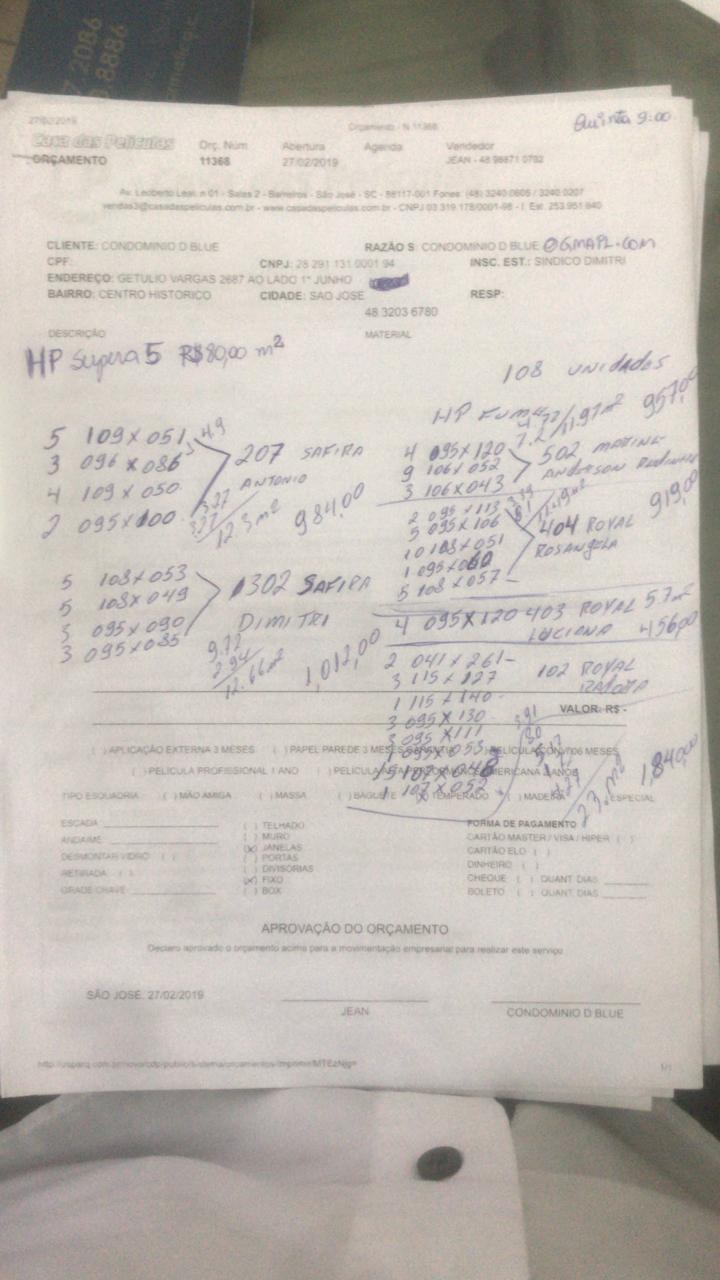 7.2086
0.8886
27/02/2019
Orçamento - N 11368
Quinta 9:00
Casa das Películas
ORÇAMENTO
Orç. Núm
11368
Abertura
27/02/2019
Agenda
Vendedor
JEAN - 48 98871 0792
Av. Leoberto Leal, n 01 - Salas 2 - Barreiros - São José - SC - 88117-001 Fones: (48) 3240 0606 / 3240 0207
vendas3@casadaspeliculas.com.br - www.casadaspeliculas.com.br - CNPJ 03.319.178/0001-98 - I. Est: 253.951.640
CLIENTE: CONDOMINIO D BLUE
RAZÃO S: CONDOMINIO D BLUE @GMAPL.COM
CPF:
CNPJ: 28 291 131 0001 94
INSC. EST.: SINDICO DIMITRI
ENDEREÇO: GETULIO VARGAS 2687 AO LADO 1° JUNHO
BAIRRO: CENTRO HISTORICO
CIDADE: SAO JOSE
RESP:
48 3203 6780
DESCRIÇÃO
MATERIAL
HP Supera 5 R$80,00 m²
108 UNIDADES
HP FUMÊ
5 109 x 051
3 096 x 086
4 109 x 050
2 095 x 100
4.9
207 SAFIRA
ANTONIO
3.27
12.3 m²
984,00
5 108 x 053
5 108 x 049
3 095 x 090
3 095 x 085
1302 SAFIRA
DIMITRI
9.72
2.94
12.66 m²
1,012,00
4 095 x 120
9 106 x 052
3 106 x 043
7.2
11.97 m²
957,0
502 MARINE
ANDERSON
2 095 x 113
5 095 x 106
10 108 x 051
1 095 x 060
5 108 x 057
404 ROYAL
ROSANGELA
919,00
4 095 x 120 403 ROYAL 5.7 m²
LUCIANA 456,00
2 041 x 261
3 115 x 127
1 115 x 140
3 095 x 130
3 095 x 111
1 095 x 053
5 107 x 048
1 107 x 052
102 ROYAL
3.91
23. m²
1,840,00
VALOR: R$ -
( ) APLICAÇÃO EXTERNA 3 MESES ( ) PAPEL PAREDE 3 MESES GARANTIA ( ) PELÍCULA CONV 06 MESES
( ) PELÍCULA PROFISSIONAL 1 ANO ( ) PELÍCULA AMERICANA 2 ANOS
TIPO ESQUADRIA: ( ) MÃO AMIGA ( ) MASSA ( ) BAGUETE (x) TEMPERADO ( ) MADEIRA ( ) ESPECIAL
ESCADA:
ANDAIME:
DESMONTAR VIDRO ( )
RETIRADA ( )
GRADE CHAVE:
( ) TELHADO
( ) MURO
(x) JANELAS
( ) PORTAS
( ) DIVISÓRIAS
(x) FIXO
( ) BOX
FORMA DE PAGAMENTO
CARTÃO MASTER / VISA / HIPER ( )
CARTÃO ELO ( )
DINHEIRO ( )
CHEQUE ( ) QUANT DIAS
BOLETO ( ) QUANT. DIAS
APROVAÇÃO DO ORÇAMENTO
Declaro aprovado o orçamento acima para a movimentação empresarial para realizar este serviço
SÃO JOSÉ, 27/02/2019
JEAN
CONDOMINIO D BLUE
1/1